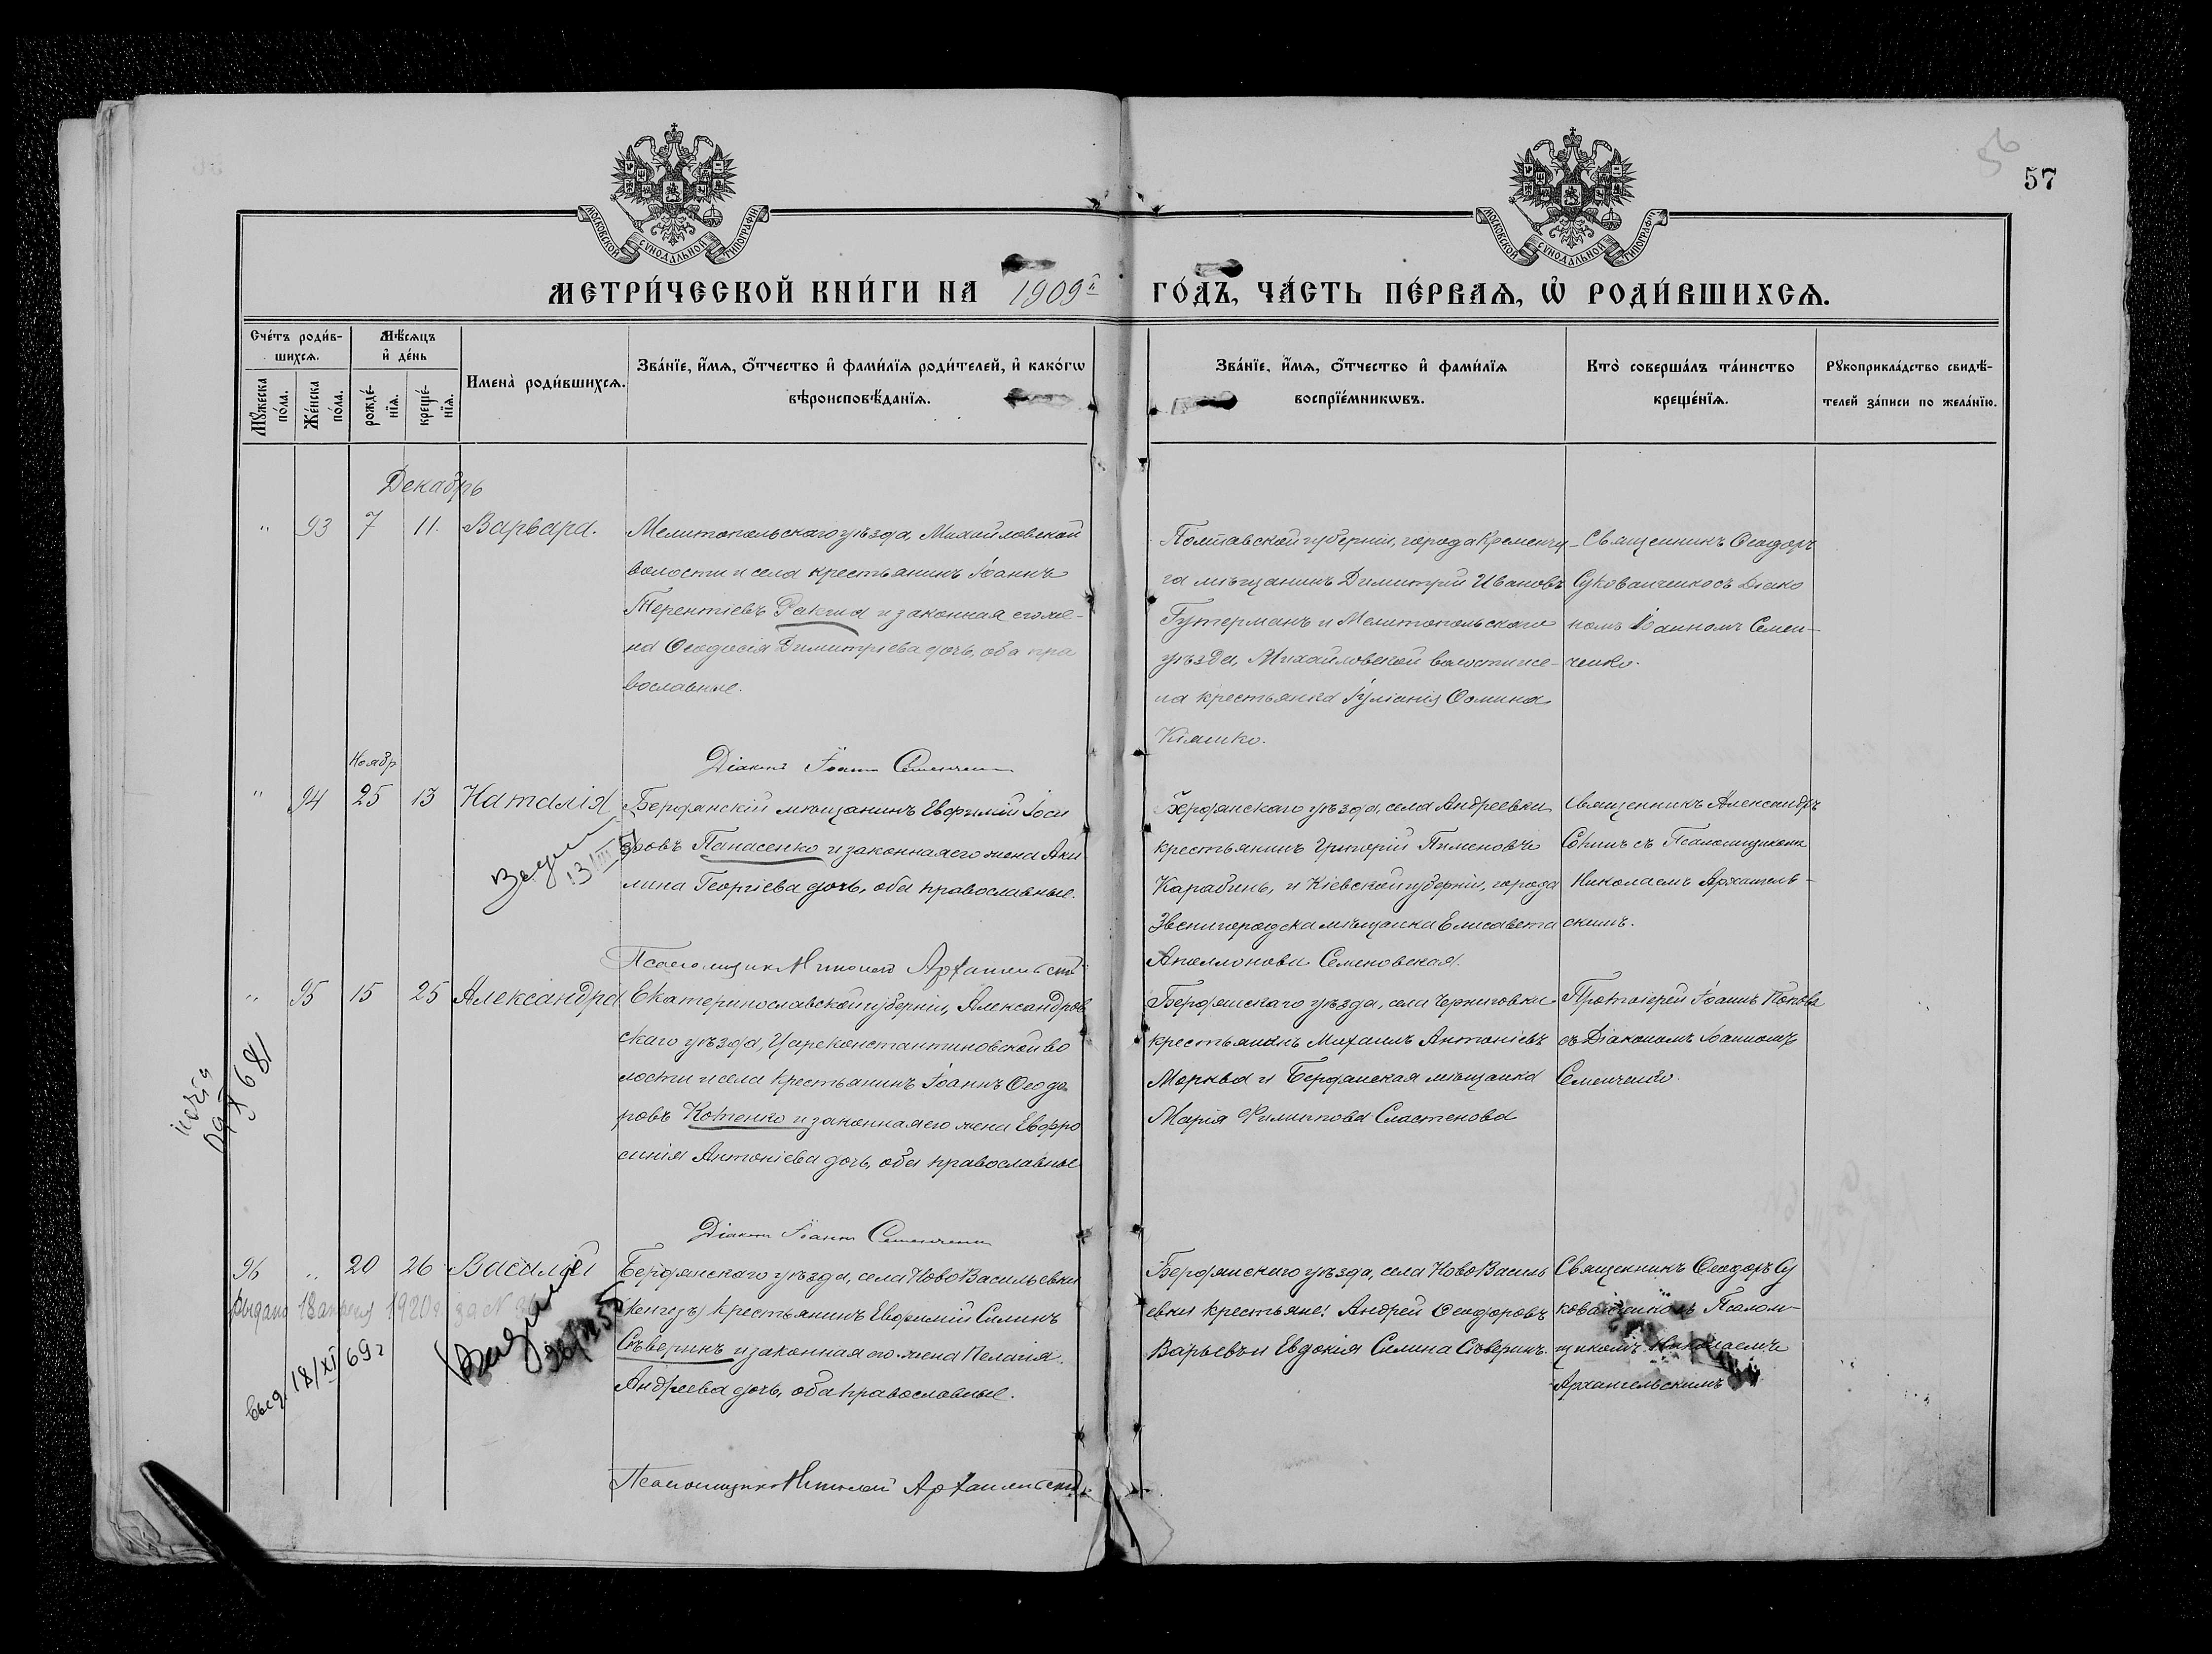 56
57
МОСКОВСКОЙ СѴНОДАЛЬНОЙ ТИПОГРАФІИ
МОСКОВСКОЙ СѴНОДАЛЬНОЙ ТИПОГРАФІИ
МЕТРИ́ЧЕСКОЙ КНИ́ГИ НА 1909й ГО́ДЪ, ЧА́СТЬ ПЕ́РВАѦ, Ѡ РОДИ́ВШИХСѦ.
Сче́тъ роди́в-
шихсѧ.
Мѣ́сѧцъ
и҆ де́нь
Мꙋ́жеска
по́ла.
Же́нска
по́ла.
рожде́-
нїѧ.
креще́-
нїѧ.
Имена̀ роди́вшихсѧ.
Зва́нїе, и҆́мѧ, ѻ҆́тчество и҆ фами́лїѧ роди́телей, и҆ како́гѡ
вѣроисповѣ́данїѧ.
Зва́нїе, и҆́мѧ, ѻ҆́тчество и҆ фами́лїѧ
воспрїе́мникѡвъ.
Кто̀ соверша́лъ та́инство
креще́нїѧ.
Рꙋкоприкла́дство свидѣ́-
телей за́писи по жела́нїю.
Декабрь
" 93 7 11. Варвара.
Мелитопольскаго уѣзда, Михайловской
волости и села крестьянинъ Іоаннъ
Терентіевъ и законная его же-
на Ѳеодосія Димитріева дочь, оба пра
вославные.
Діаконъ Іоаннъ Семенченко
Полтавской губерніи, города Кременчу-
га мѣщанинъ Димитрій Ивановъ
Гутерманъ и Мелитопольскаго
уѣзда, Михайловской волости и се-
ла крестьянка Іуліанія Ѳомина
Кіяшко.
Священникъ Ѳеодоръ
Сукованченко съ Діако
номъ Іоанномъ Семен-
ченко.
Ноябр
" 94 25 13 Наталія
13/III
Бердянскій мѣщанинъ Евфимій Іоси
фовъ Панасенко и законная его жена Аки
лина Георгіева дочь, оба православные.
Псаломщикъ Николай Архангельскій
Бердянскаго уѣзда, села Андреевки
крестьянинъ Григорій Пименовъ
Карабинь, и Кіевской губерніи, города
Звенигородска мѣщанка Елисавета
Аполлонова Семеновская.
Священникъ Александръ
съ Псаломщикомъ
Николаемъ Архангель-
скимъ.
" 95 15 25 Александра
Екатеринославской губерніи, Александров
скаго уѣзда, Цареконстантиновской во
лости и села крестьянинъ Іоаннъ Ѳеодо
ровъ Котенко и законная его жена Евфро
синія Антоніева дочь, оба православные
Діаконъ Іоаннъ Семенченко
Бердянскаго уѣзда, села Черниговки
крестьянинъ Михаилъ Антоніевъ
Морква и Бердянская мѣщанка
Марія Филиппова Сластенова
Протоіерей Іоаннъ Поповъ
съ Діакономъ Іоанномъ
Семенченко.
96 " 20 26 Василій
Выдано 18 апреля 1920 г за N
выд. 18/XI 69 г
Бердянскаго уѣзда, села НовоВасильевки
(Кенгезъ) крестьянинъ Евфимій Силинъ
Сѣверинъ и законная его жена Пелагія
Андреева дочь, оба православные.
Псаломщикъ Николай Архангельскій
Бердянскаго уѣзда, села НовоВасиль
евки крестьяне: Андрей Ѳеодоровъ
Варыевъ и Евдокія Силина Сѣверинъ.
Священникъ Ѳеодоръ Су
Псалом-
щикомъ Николаемъ
Архангельскимъ